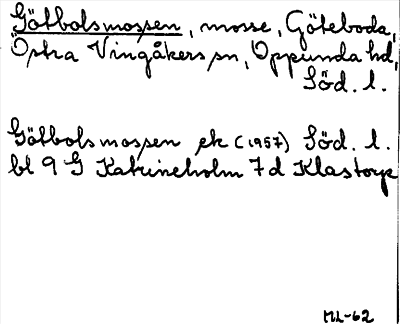 Götbolsmossen, mosse, Göteboda,
Östra Vingåkers sn, Oppunda hd,
Söd. l.
Götbolsmossen ek (1957) Söd. l.
bl 9 G Katrineholm 7d Klastorp
ML-62